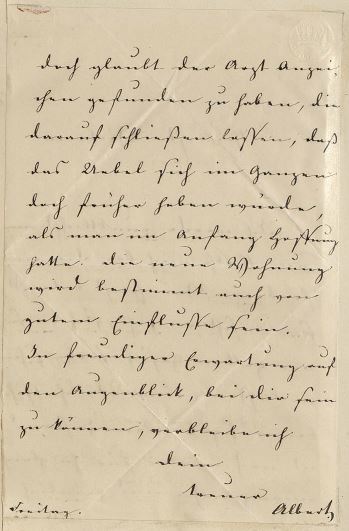 doch glaubt der Arzt Anzei-
chen gefunden zu haben, die
darauf schließen lassen, daß
das Uebel sich im Ganzen
doch früher heben würde,
als man im Anfang Hoffnung
hatte. Die neue Wohnung
wird bestimmt auch von
gutem Einflusse sein.
In freudiger Erwartung auf
den Augenblick, bei dir sein
zu können, verbleibe ich
Dein
treuer
Albert,
Freitag.